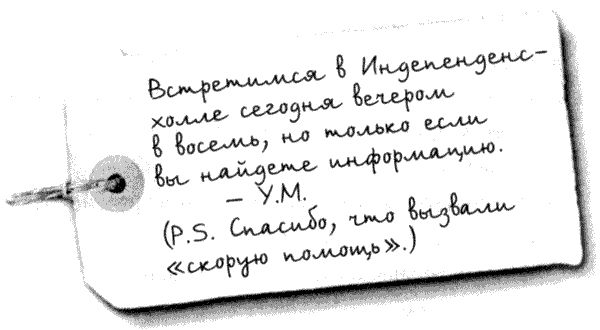 Встретимся в Индепенденс-
холле сегодня вечером
в восемь, но только если
вы найдете информацию.
– У.М.
(P.S. Спасибо, что вызвали
«скорую помощь».)